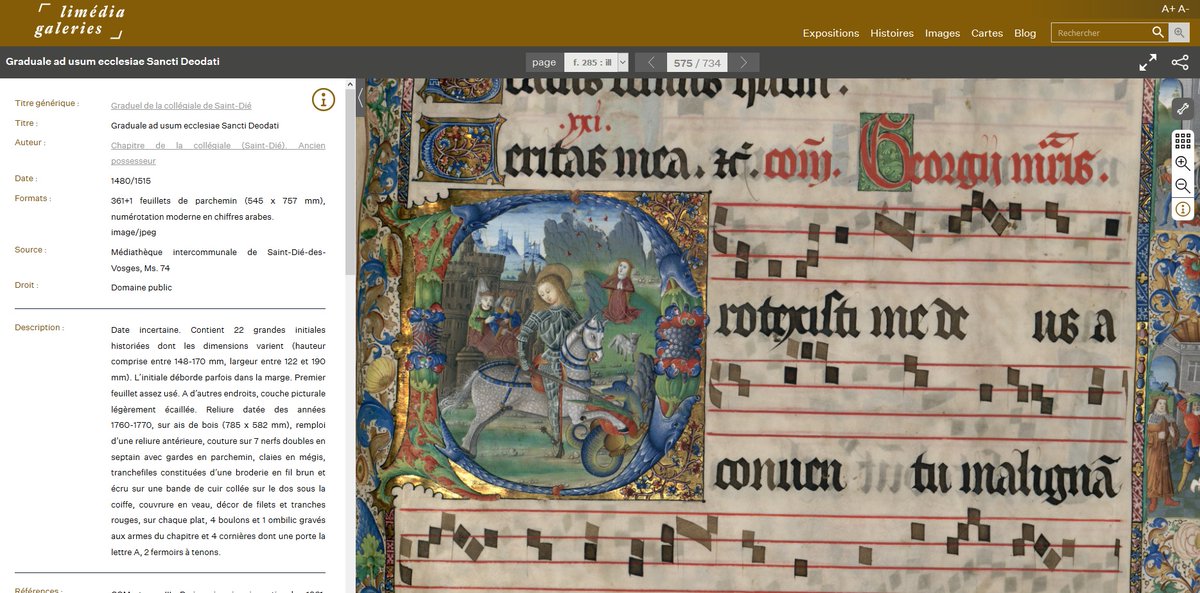 limédia
galeries
A+ A-
Expositions Histoires Images Cartes Blog
Rechercher
Graduale ad usum ecclesiae Sancti Deodati
page f. 285 : ill 575 / 734
Titre générique : Graduel de la collégiale de Saint-Dié
Titre : Graduale ad usum ecclesiae Sancti Deodati
Auteur : Chapitre de la collégiale (Saint-Dié). Ancien
possesseur
Date : 1480/1515
Formats : 361+1 feuillets de parchemin (545 x 757 mm),
numérotation moderne en chiffres arabes.
image/jpeg
Source : Médiathèque intercommunale de Saint-Dié-des-
Vosges, Ms. 74
Droit : Domaine public
Description : Date incertaine. Contient 22 grandes initiales
historiées dont les dimensions varient (hauteur
comprise entre 148-170 mm, largeur entre 122 et 190
mm). L'initiale déborde parfois dans la marge. Premier
feuillet assez usé. A d'autres endroits, couche picturale
légèrement écaillée. Reliure datée des années
1760-1770, sur ais de bois (785 x 582 mm), remploi
d'une reliure antérieure, couture sur 7 nerfs doubles en
septain avec gardes en parchemin, claies en mégis,
tranchefiles constituées d'une broderie en fil brun et
écru sur une bande de cuir collée sur le dos sous la
coiffe, couvrure en veau, décor de filets et tranches
rouges, sur chaque plat, 4 boulons et 1 ombilic gravés
aux armes du chapitre et 4 cornières dont une porte la
lettre A, 2 fermoirs à tenons.
Références :
.xxi.
Veritas mea. com̄. Georgii mr̄is.
Protexisti me de us a
conuen tu malignā